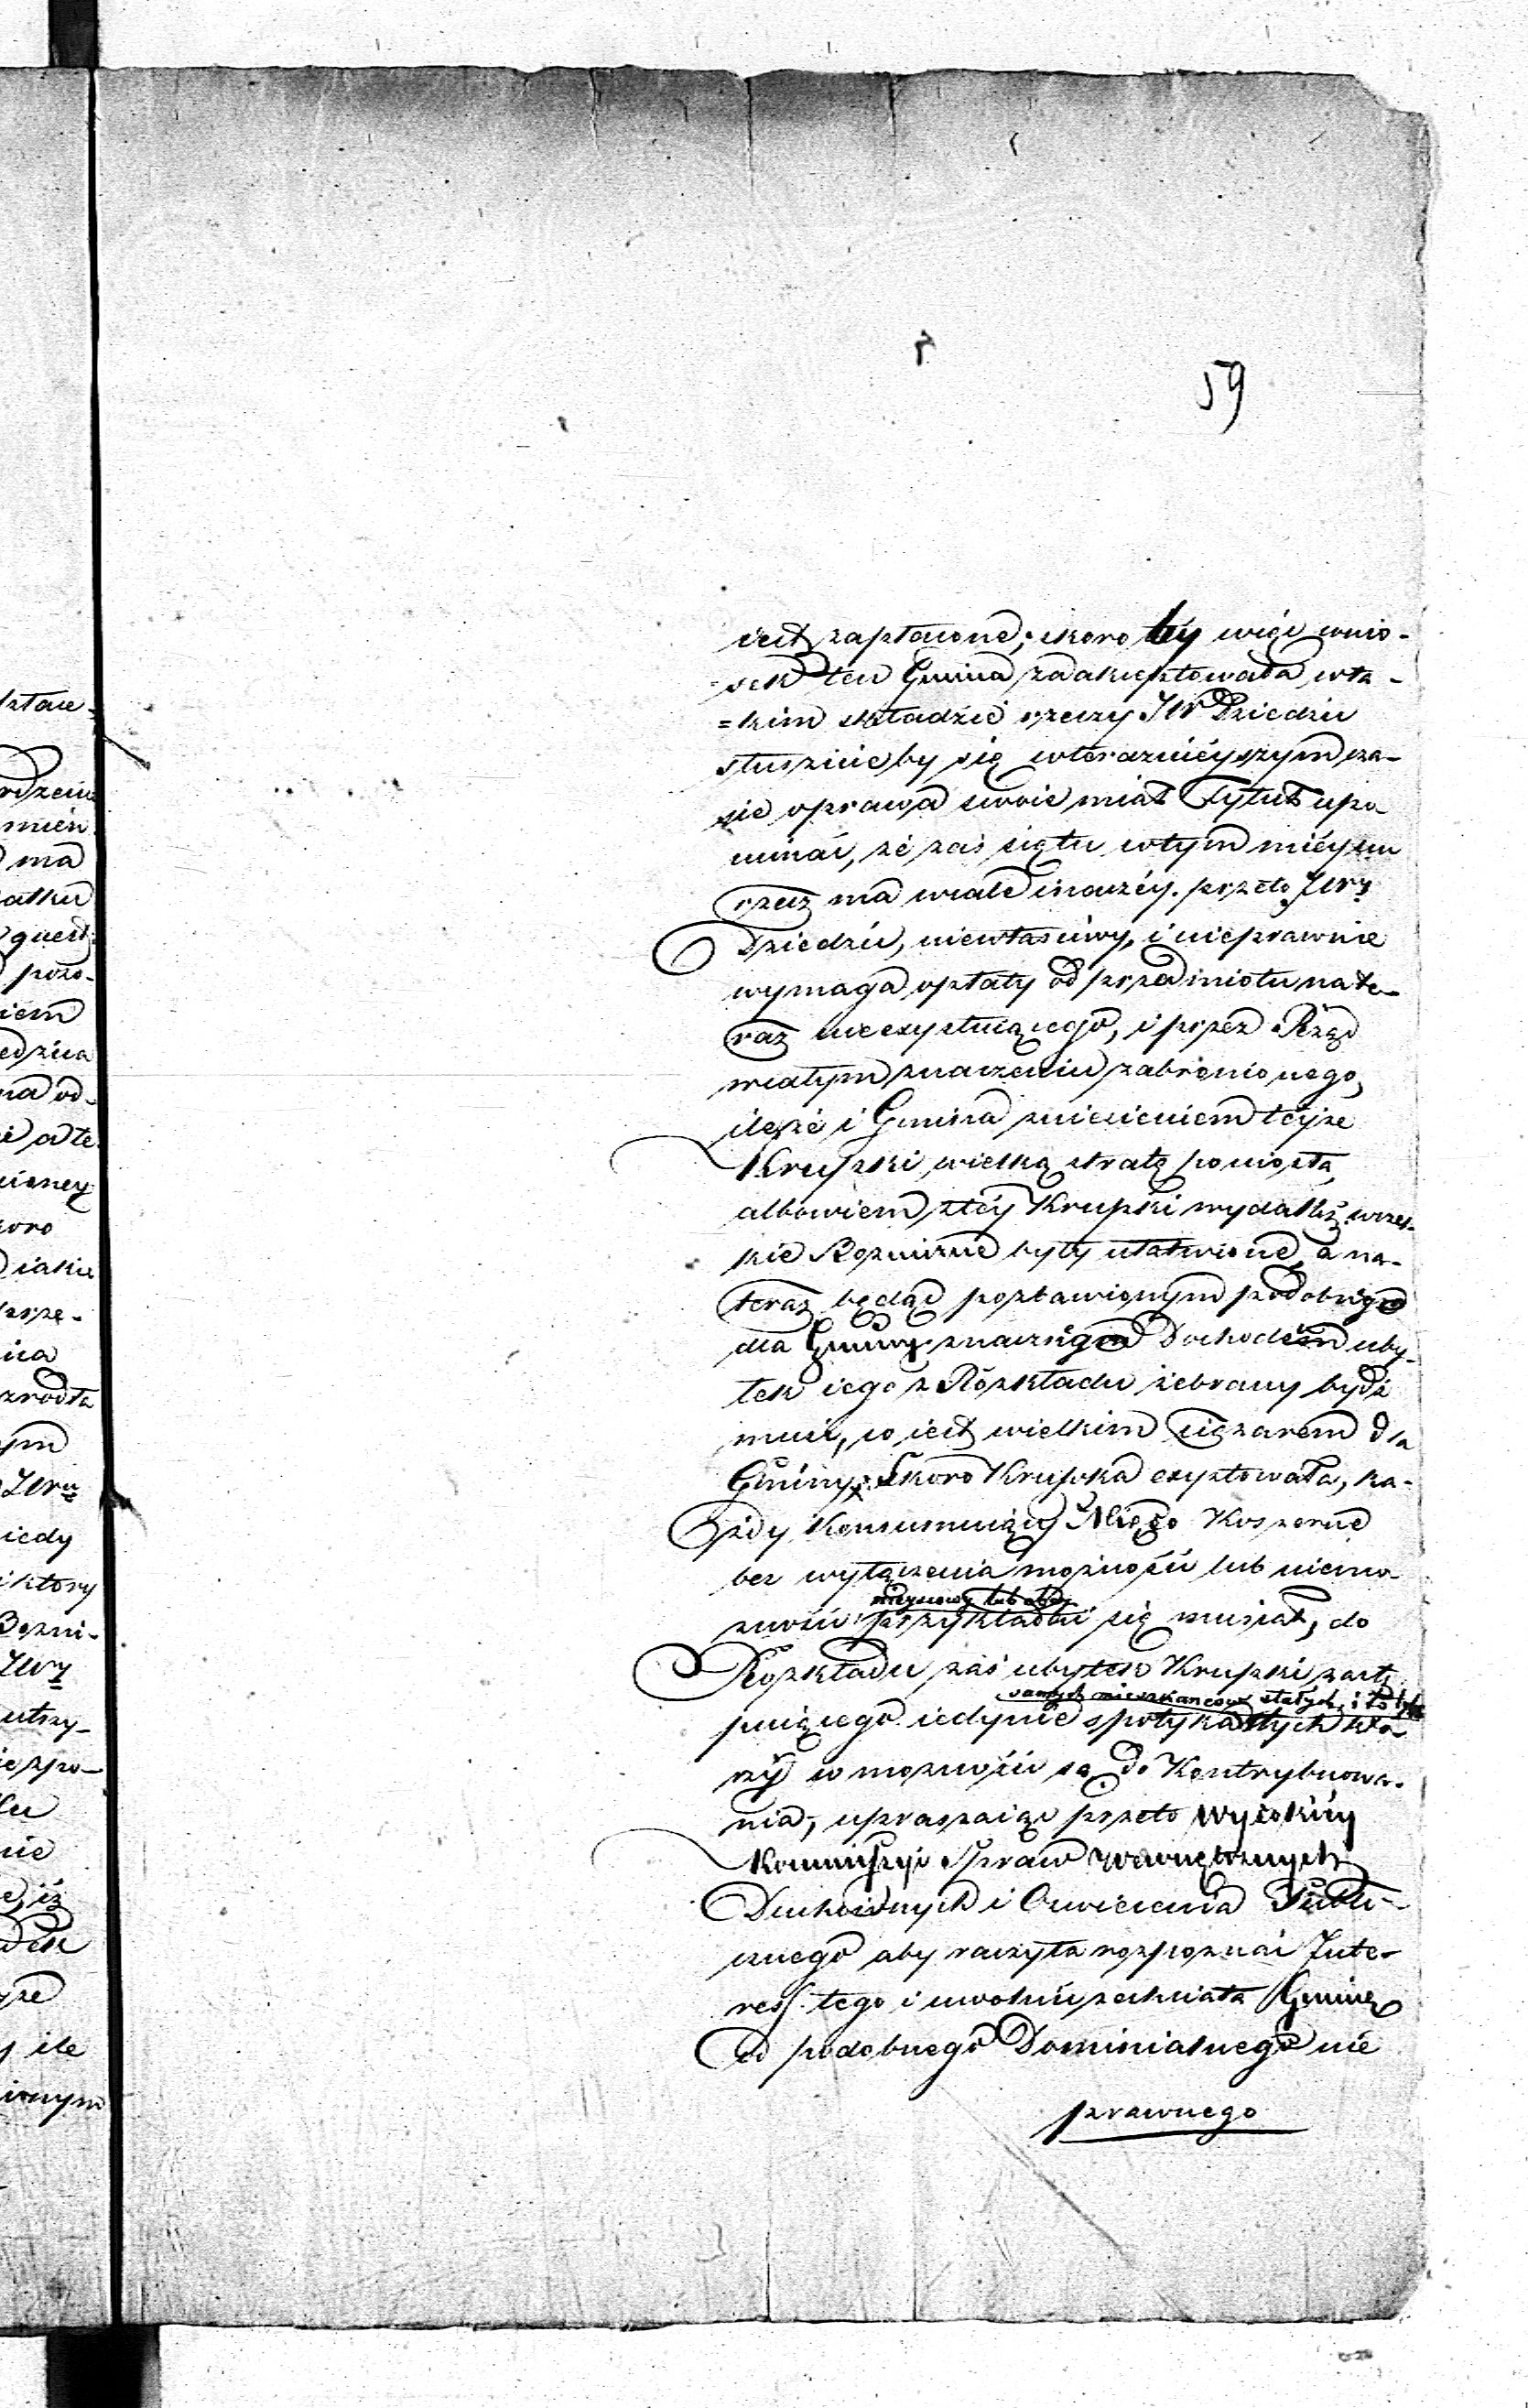 59
iest zapłacone; skoro by więc wnio-
=sek ten Gmina zaakceptowała, w ta-
=kim składzie rzeczy JW Dziedzic
słusznie by się w teraznieyszym cza-
sie o prawa swoie miał Tytuł upo
minać, że zaś się tu w tym mieyscu
rzecz ma wcale inaczéy. przeto JWy
Dziedzic, niewłasciwy, i nieprawnie
wymaga opłaty od przedmiotu na te-
raz nieexystuiącego, i przez Rząd
w całym znaczeniu zabronionego,
ileże i Gmina zniesieniem téyże
Krupki wielką stratę poniosła,
albowiem z téy Krupki wydatki wszel-
kie Boznicze były ułatwione, a na-
teraz będąc pozbawionym podobnego
dla Gminy znacznego Dochodem uby-
tek iego z Rozkładu zebrany bydź
musi, co iest wielkim ciężarem dla
Gminy: Skoro Krupka exystowała, ka-
żdy Konsumuiący Mięso Koszerne
bez wyłączenia możności lub niemo-
mieyscowy lub obcy
żności przykładać się musiał, do
Rozkładu zaś ubytek Krupki zastę
samych mieszkancow stałych, i to tych
puiącego iedynie spotyka tych któ-
rzy w możności są do Kontrybuowa-
nia, upraszaiąc przeto Wysokiéy
Kommissyi Spraw Wewnętrznych
Duchownych i Oswiecenia Publi-
cznego aby raczyła rozpoznać Inte-
ress tego i uwolnić zechciała Gminę
od podobnego Dominialnego nie
prawnego